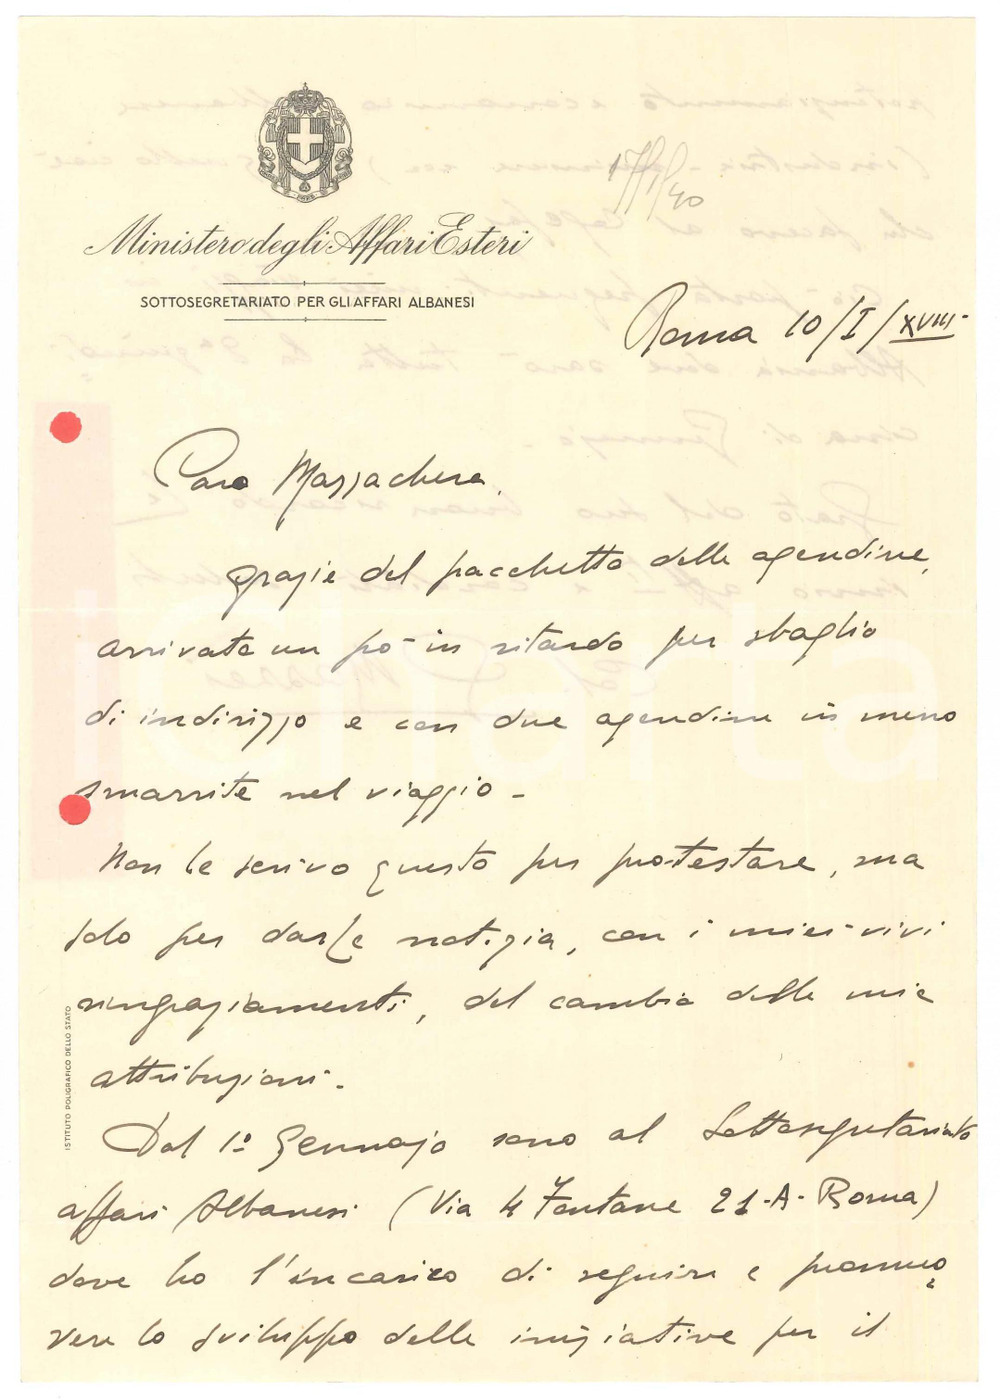 17/1/40
Ministero degli Affari Esteri
SOTTOSEGRETARIATO PER GLI AFFARI ALBANESI
Roma 10/I/XVIII-
Caro Mazzachera,
grazie del pacchetto delle agendine,
arrivate un pò in ritardo per sbaglio
di indirizzo e con due agendine in meno
smarrite nel viaggio -
Non le scrivo questo per protestare, ma
solo per darLe notizia, con i miei vivi
ringraziamenti, del cambio delle mie
attribuzioni -
Dal 1º Gennajo sono al Sottosegretariato
affari Albanesi (Via 4 Fontane 21-A-Roma)
dove ho l'incarico di seguire e promuo
vere lo sviluppo delle iniziative per il
ISTITUTO POLIGRAFICO DELLO STATO